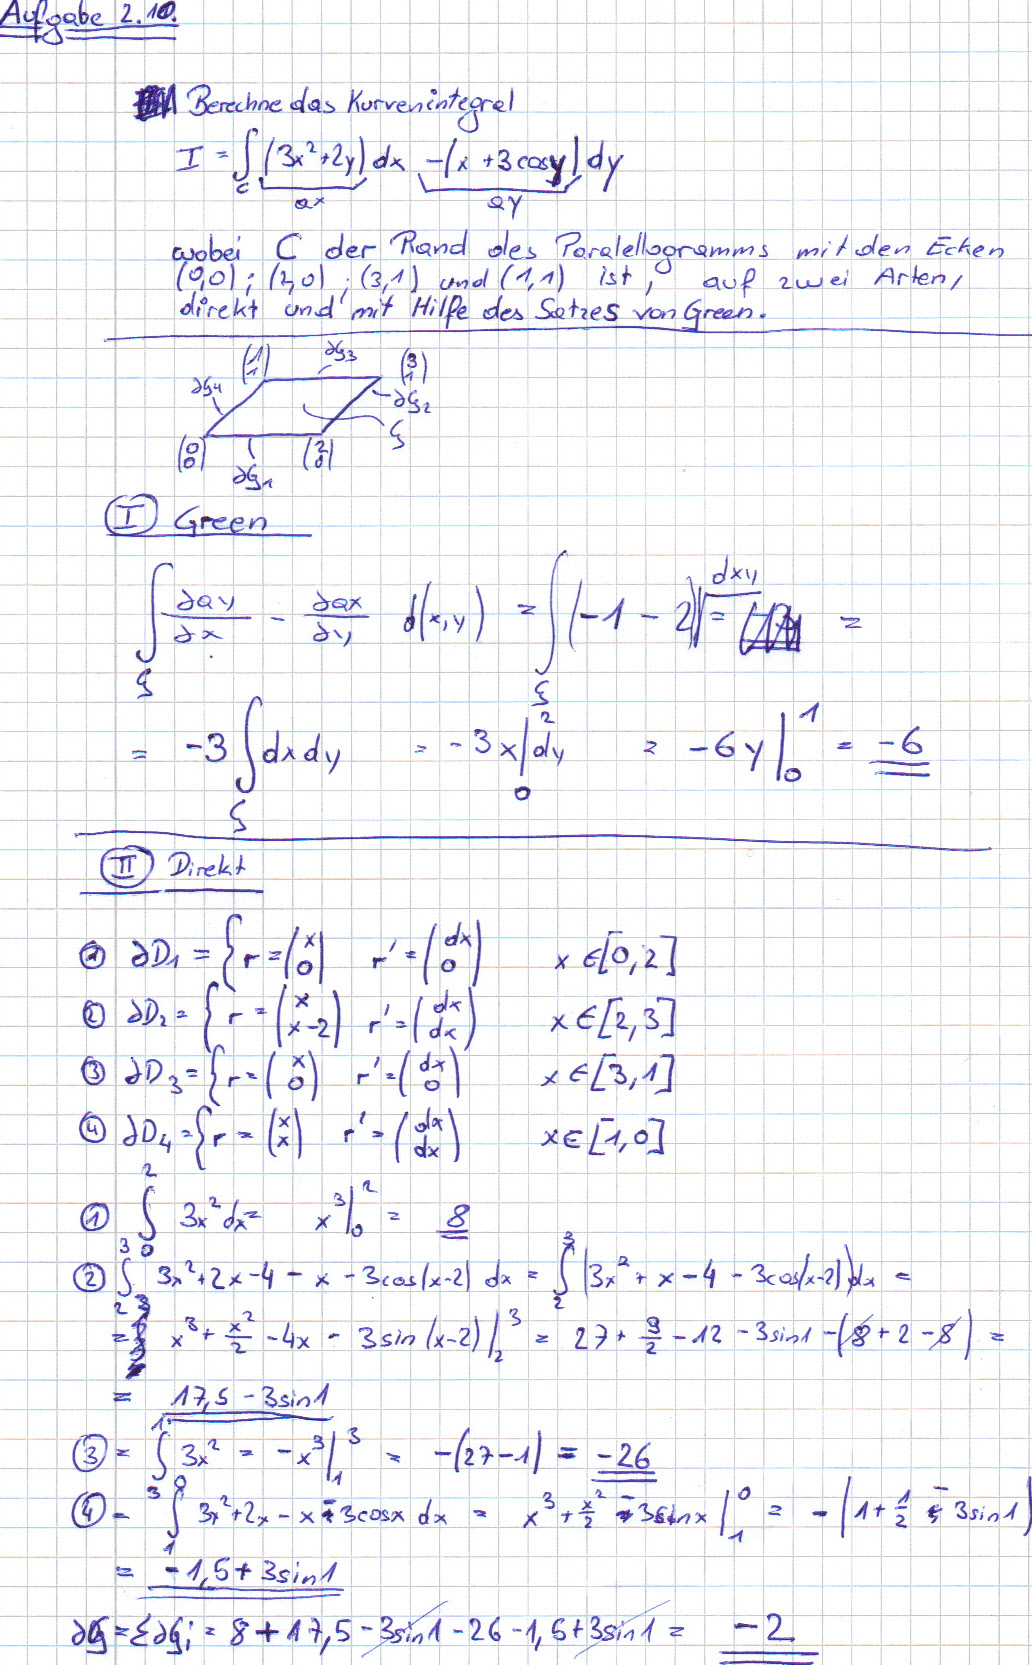 Aufgabe 2.10.
Berechne das Kurvenintegral
I = ∫_C (3x²+2y) dx -(x + 3 cosy) dy
ax ay
wobei C der Rand des Paralellogramms mit den Ecken
(0,0); (2,0); (3,1) und (1,1) ist, auf zwei Arten,
direkt und mit Hilfe des Satzes von Green.
(1 1) ∂G3 (3 1)
∂G4 ∂G2
G
(0 0) ∂G1 (2 0)
I Green
∫_G ∂ay/∂x - ∂ax/∂y d(x,y) = ∫_G (-1 - 2) dxy = =
= -3 ∫_G dxdy = -3 x|_0^2 dy = -6y|_0^1 = -6
II Direkt
① ∂D1 = { r = (x 0) r' = (dx 0) x ∈ [0,2]
② ∂D2 = { r = (x x-2) r' = (dx dx) x ∈ [2,3]
③ ∂D3 = { r = (x 0) r' = (dx 0) x ∈ [3,1]
④ ∂D4 = { r = (x x) r' = (dx dx) x ∈ [1,0]
① ∫_0^2 3x² dx = x³|_0^2 = 8
② ∫_2^3 3x²+2x-4 - x - 3cos(x-2) dx = ∫_2^3 (3x² + x - 4 - 3cos(x-2)) dx =
= x³ + x²/2 - 4x - 3sin(x-2)|_2^3 = 27 + 9/2 - 12 - 3sin1 - (8 + 2 - 8) =
= 17,5 - 3sin1
③ = ∫_3^1 3x² = -x³|_1^3 = -(27-1) = -26
④ = ∫_1^0 3x²+2x - x - 3cosx dx = x³ + x²/2 - 3sinx|_1^0 = -(1 + 1/2 - 3sin1)
= -1,5 + 3sin1
∂G = Σ∂Gi = 8 + 17,5 - 3sin1 - 26 - 1,5 + 3sin1 = -2